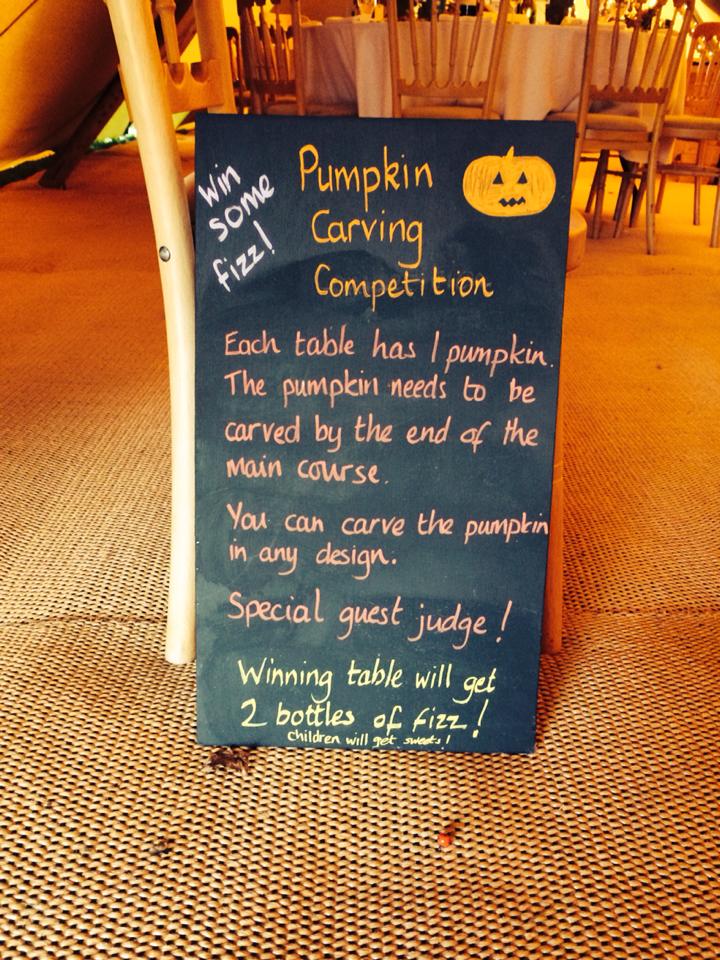 win
some
fizz!
Pumpkin
Carving
Competition
Each table has 1 pumpkin.
The pumpkin needs to be
carved by the end of the
main course.
You can carve the pumpkin
in any design.
Special guest judge!
Winning table will get
2 bottles of fizz!
Children will get sweets!